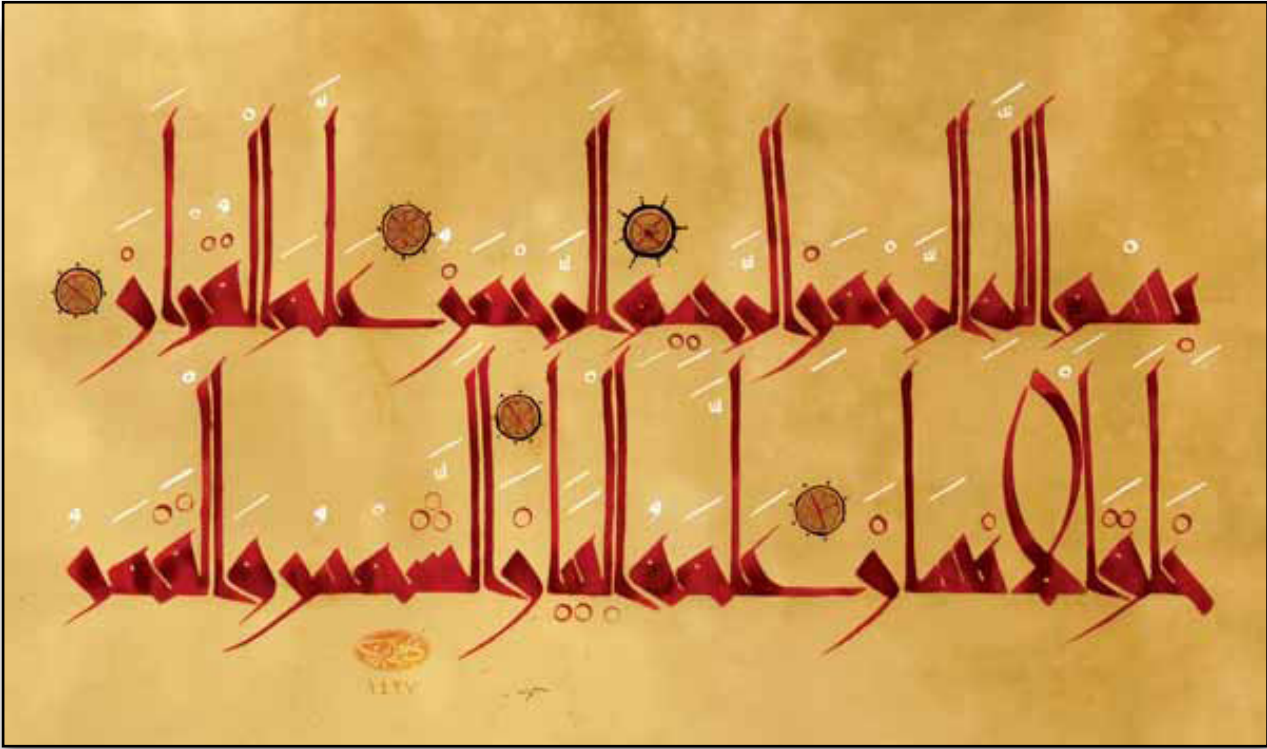 بِسْمِ اللَّهِ الرَّحْمَنِ الرَّحِيمِ الرَّحْمَنُ عَلَّمَ الْقُرْآنَ
خَلَقَ الْإِنْسَانَ عَلَّمَهُ الْبَيَانَ الشَّمْسُ وَالْقَمَرُ
١٤٢٧